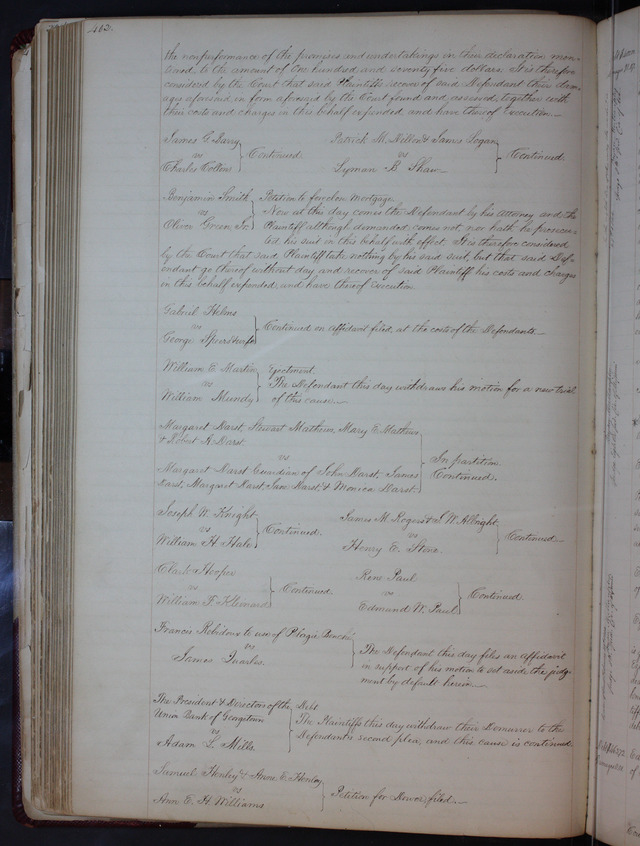 462.
the nonperformance of the promises and undertakings in their declaration men-
tioned to the amount of One hundred and seventy five dollars. It is therefore
considered by the Court that said Plaintiffs recover of said Defendant their dam-
ages aforesaid, in form aforesaid by the Court found and assessed, together with
their costs and charges in this behalf expended, and have thereof Execution.
James G. Barry
vs
Charles Collins
Continued.
Patrick M. Dillon & James Logan
vs
Lyman B Shaw
Continued.
Benjamin Smith
vs
Oliver Green Jr.
Petition to foreclose Mortgage.
Now at this day comes the Defendant by his Attorney and the
Plaintiff although demanded comes not, nor hath he prosecu-
ted his suit in this behalf with effect. It is therefore considered
by the Court that said Plaintiff take nothing by his said suit, but that said Def-
endant go thereof without day and recover of said Plaintiff his costs and charges
in this behalf expended, and have thereof execution
Gabriel Helms
vs
George
Continued on affidavit filed, at the costs of the Defendants.
William E. Martin
vs
William Mundy
Ejectment.
The Defendant this day withdraws his motion for a new trial
of this cause.
Margaret Darst, Stewart Mathews, Mary E. Mathews
& Robert A. Darst
vs
Margaret Darst Guardian of John Darst, James
Darst, Margaret Darst, Jane Darst, & Monica Darst.
In partition.
Continued.
Joseph N. Knight
vs
William H. Hale
Continued.
James M. Rogers & S. W. Albright
vs
Henry E. Stone.
Continued.
Clark & Hooper
vs
William F.
Continued.
Rene Paul
vs
Edmund W. Paul
Continued.
Francis Robidoux to use of
vs
James Quarles.
The Defendant this day files an affidavit
in support of his motion to set aside the judg-
ment by default herein.
The President & Directors of the
Union Bank of Georgetown
vs
Adam L. Mills.
Debt
The Plaintiffs this day withdraw their Demurrer to the
Defendants second plea, and this cause is continued
Samuel Henley & Anne E. Henley
vs
Ann E. H. Williams
Petition for Dower, filed.